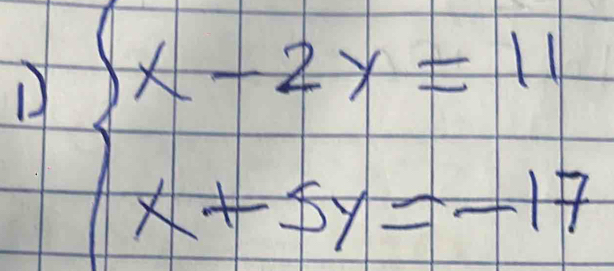 1) { x - 2y = 11
x + 5y = -17